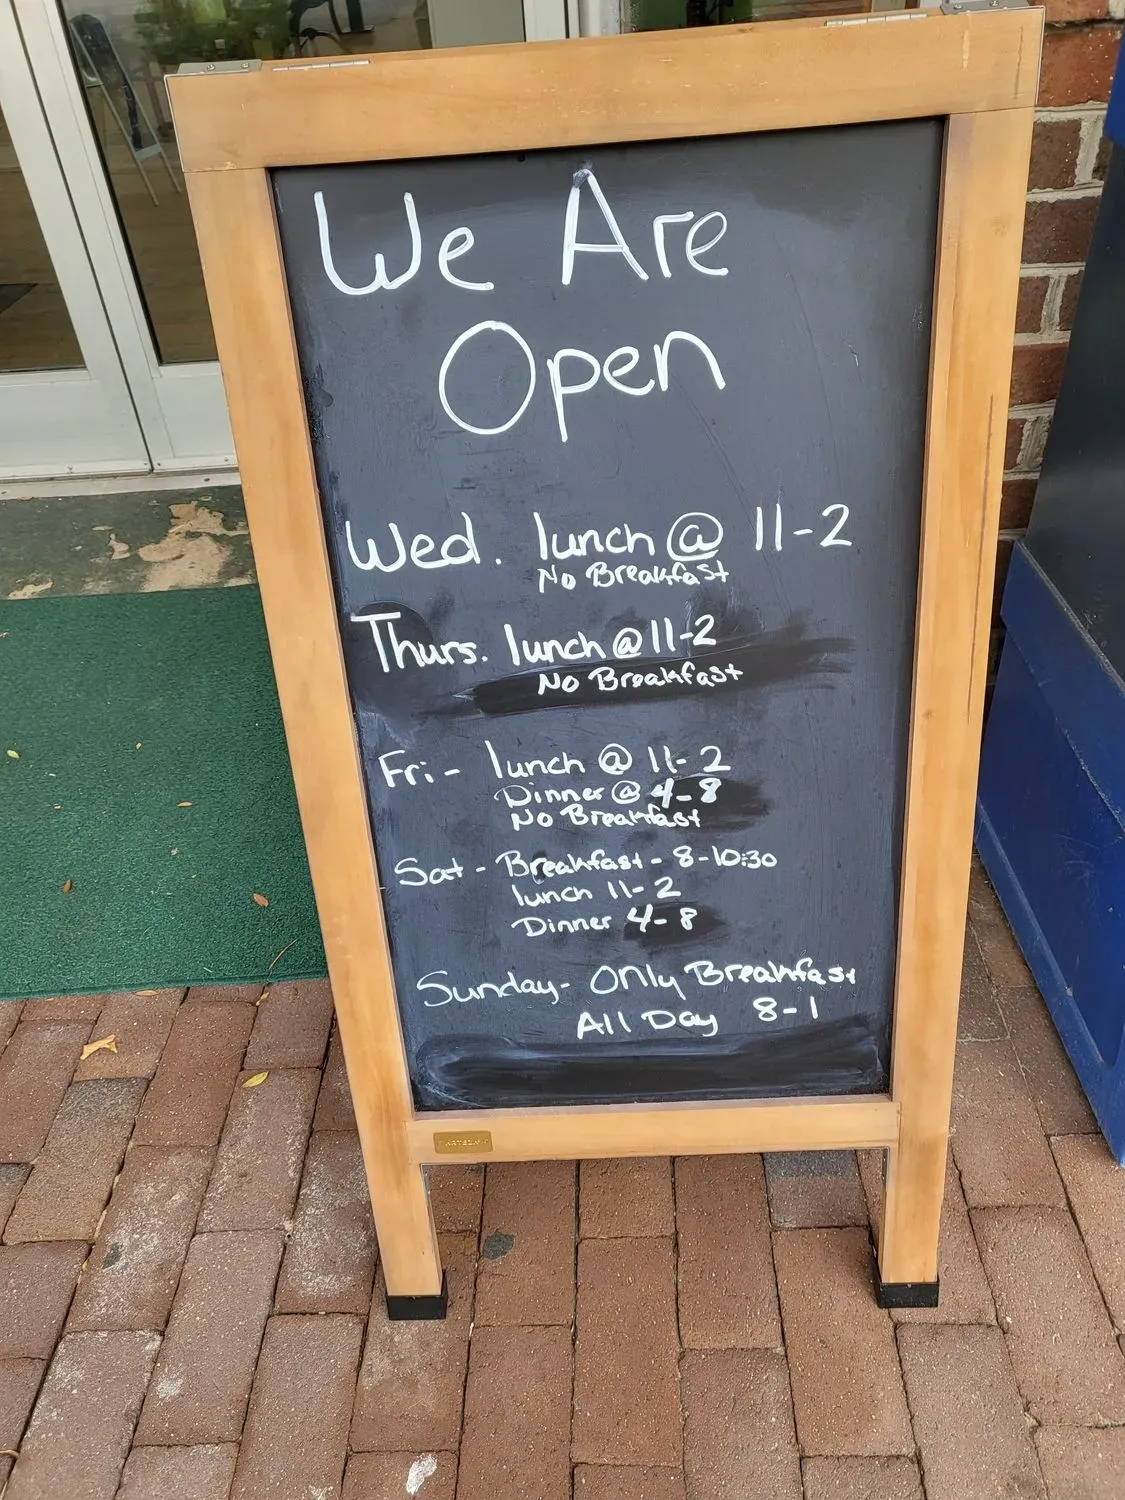 We Are
Open
Wed. lunch @ 11-2
No Breakfast
Thurs. lunch @ 11-2
No Breakfast
Fri - lunch @ 11-2
Dinner @ 4-8
No Breakfast
Sat - Breakfast - 8-10:30
lunch 11-2
Dinner 4-8
Sunday - Only Breakfast
All Day 8-1
ARTEZA